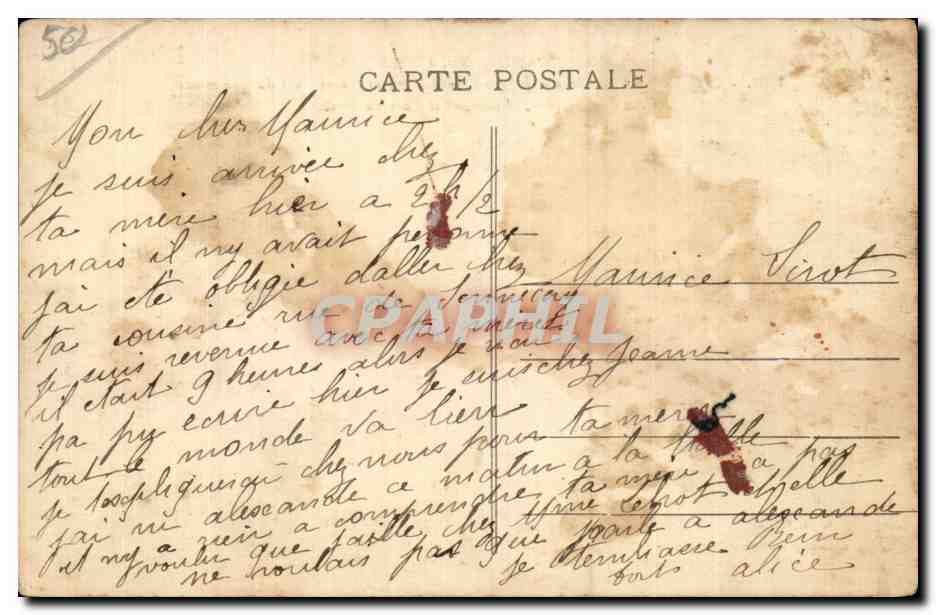 50
CARTE POSTALE
Mon cher Maurice
je suis arrivée chez
ta mère hier a 2h 1/2
mais il ny avait personne
jai eté obligie daller chez
ta cousine rue de
je suis revenue avec ta mere
il etait 9 heures alors je nai
pa pu ecrire hier je suis chez Jeanne
tout le monde va bien
je chez nous pour ta mere
jai vu alexandre ce matin a la halle
il ny a rien a comprendre ta mere a pas
voulu que jaille chez Mme elle
ne voulais pas que jparle a alexandre
je tembrasse Bien
forts alice
Maurice Sirot
CPAPHIL